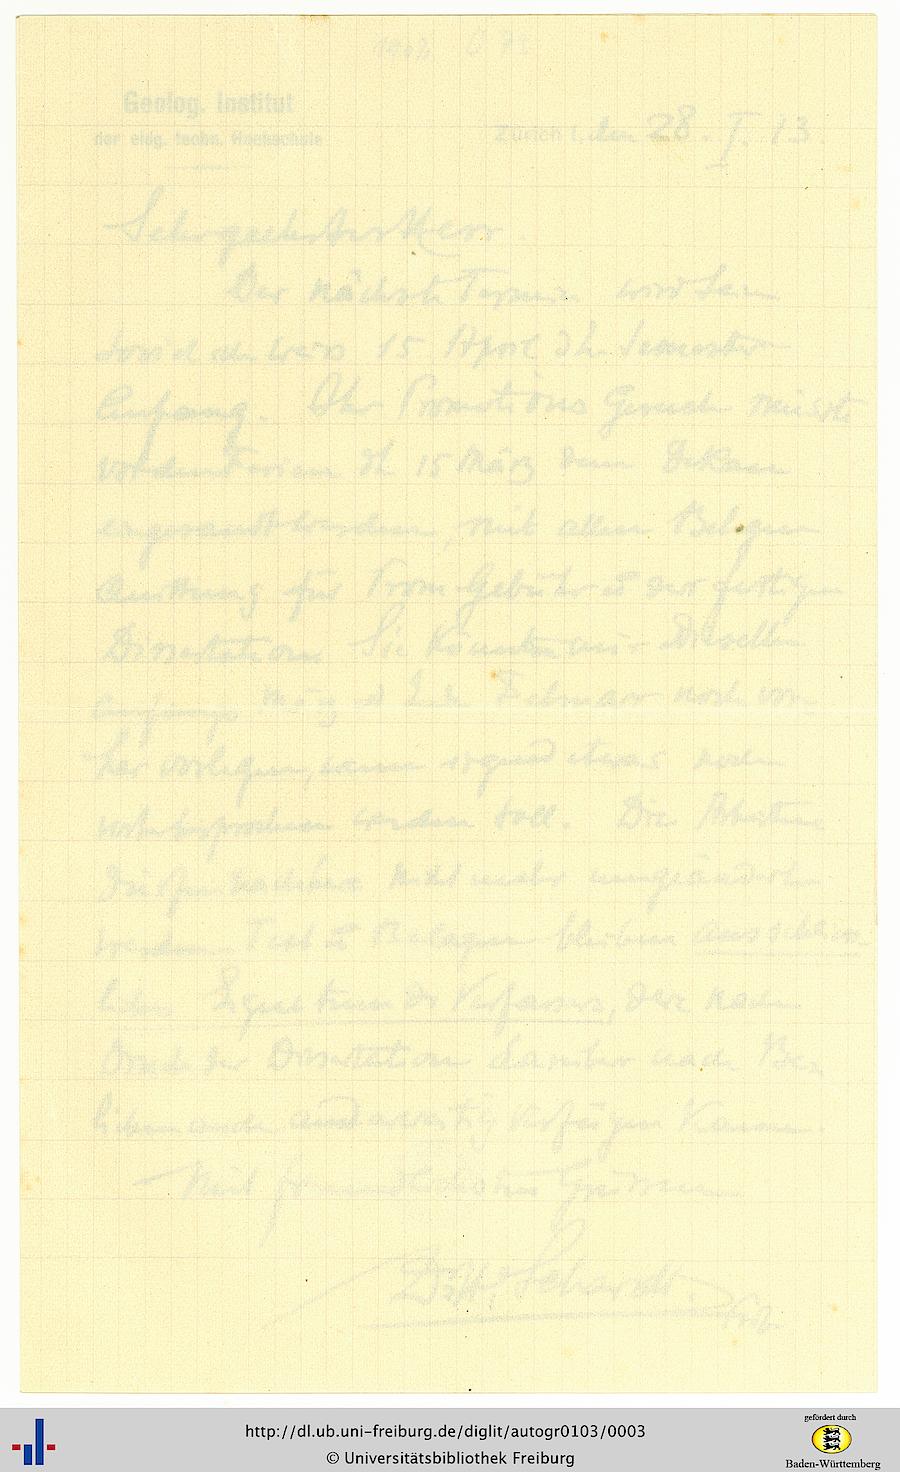 1902
Geolog. Institut
der eidg. techn. Hochschule
Zürich I, den 28. I. 13.
Sehr geehrter Herr
Der nächste Termin wird
15 April d h Semester
Anfang. Ihr Promotions Gesuch müsste
vor den Ferien d h 15 März dem Dekan
eingesandt werden, mit allen Belegen
Quittung für Prom Gebühr u der fertigen
Dissertation Sie könnten mir Dieselbe
Februar noch vor-
her vorlegen, wenn irgend etwas noch
werden soll. Die Arbeiten
dürfen nachher nicht mehr umgeändert
werden Text u Beilagen bleiben ausschliess
liches Eigentum des Verfassers, der nach
Druck der Dissertation darüber nach Be-
lieben auch anderweitig verfügen kann.
Mit freundlichsten Grüssen
Dr H. Schardt. Prof
http://dl.ub.uni-freiburg.de/diglit/autogr0103/0003
© Universitätsbibliothek Freiburg
gefördert durch
Baden-Württemberg